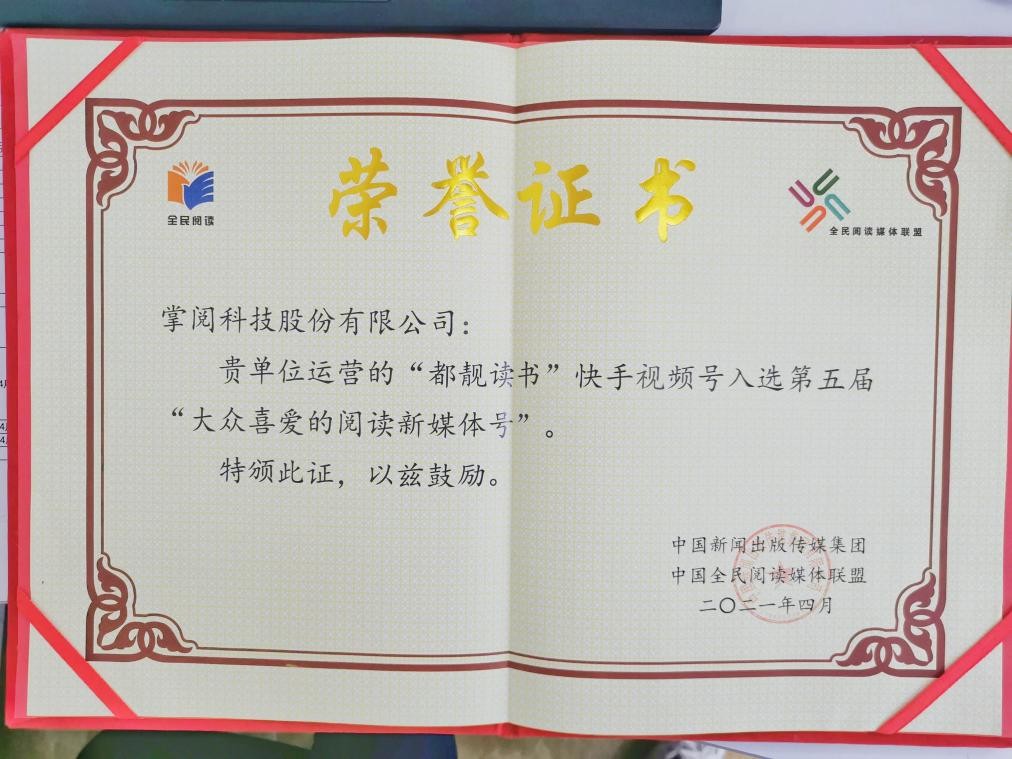 荣誉证书
全民阅读
全民阅读媒体联盟
掌阅科技股份有限公司：
贵单位运营的“都靓读书”快手视频号入选第五届
“大众喜爱的阅读新媒体号”。
特颁此证，以兹鼓励。
中国新闻出版传媒集团
中国全民阅读媒体联盟
二〇二一年四月